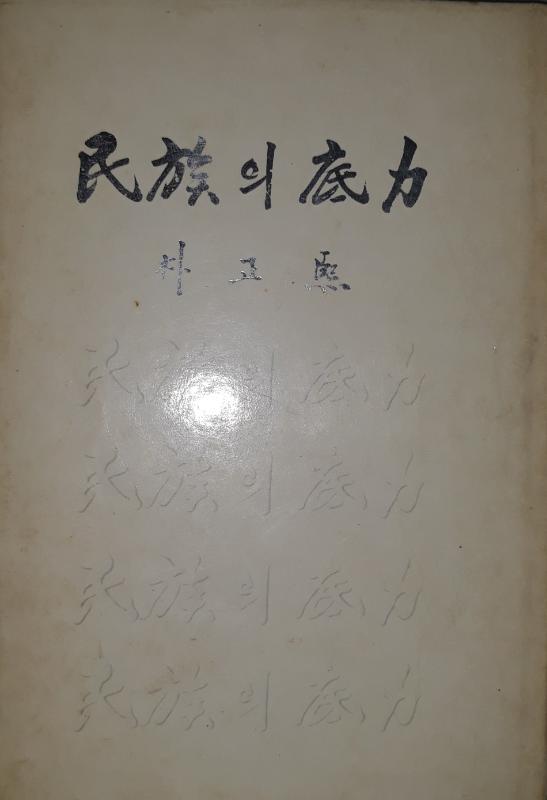 民族의底力
朴正熙
民族의底力
民族의底力
民族의底力
民族의底力